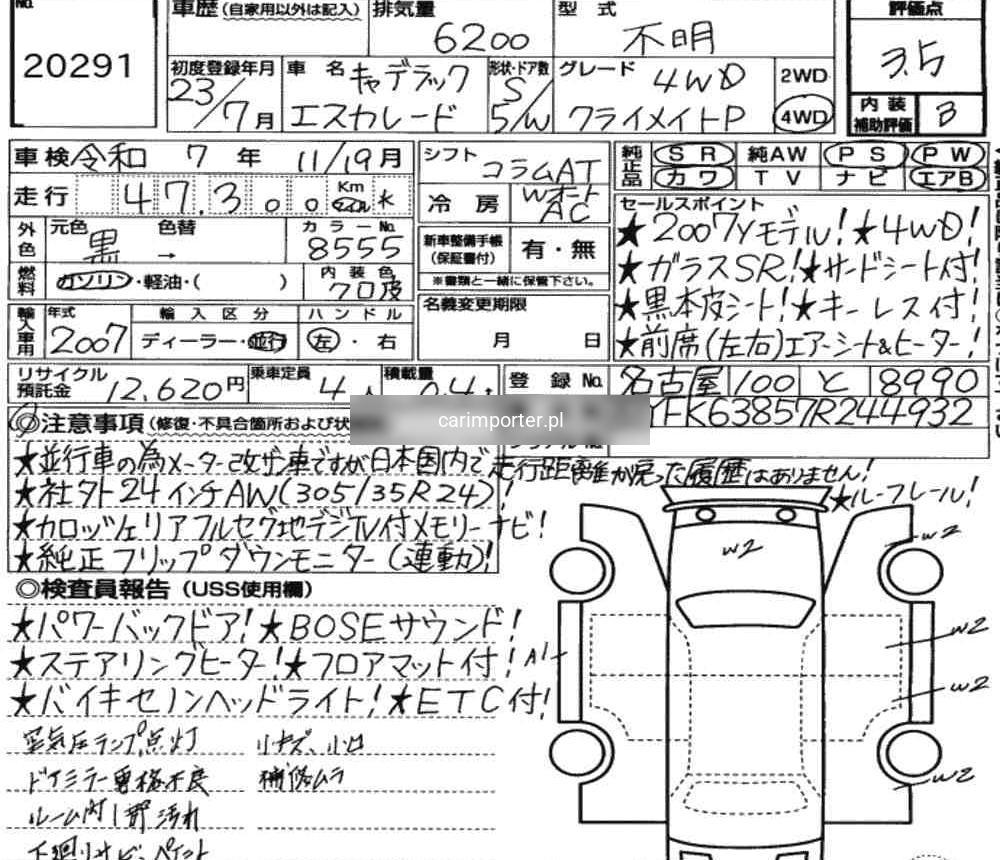 No.
20291
車歴 (自家用以外は記入)
排気量
6200
型式
不明
評価点
3.5
内装補助評価
B
初度登録年月
23/7月
車名
キャデラック
エスカレード
形状・ドア数
S/5/W
グレード
4WD
クライメイトP
2WD
4WD
車検 令和 7 年 11/19月
シフト
コラムAT
純正品
SR 純AW PS PW
カワ TV ナビ エアB
走行 47,300 Km マイル
冷房
Wオート
AC
外色
元色
黒
色替
→
カラーNo.
8555
新車整備手帳
(保証書付)
有・無
※書類と一緒に保管下さい。
燃料
ガソリン・軽油・( )
内装色
クロ皮
名義変更期限
月 日
輸入車用
年式
2007
輸入区分
ディーラー・並行
ハンドル
左・右
セールスポイント
★2007Yモデル!★4WD!
★ガラスSR!★サードシート付!
★黒本皮シート!★キーレス付!
★前席(左右)エアーシート&ヒーター!
リサイクル預託金
12,620円
乗車定員
4人
積載量
0.4t
登録No.
名古屋 100 と 8990
YFK63857R244932
carimporter.pl
◎注意事項 (修復・不具合箇所および状
★並行車の為メーター改ザン車ですが日本国内で走行距離が戻った履歴はありません!
★社外24インチAW(305/35R24)!
★ルーフレール!
★カロッツェリアフルセグ地デジTV付メモリーナビ!
★純正フリップダウンモニター(連動)!
◎検査員報告 (USS使用欄)
★パワーバックドア!★BOSEサウンド!
★ステアリングヒーター!★フロアマット付!
★バイキセノンヘッドライト!★ETC付!
空気圧ランプ点灯
リキズ、小凹
ドアミラー電格不良
補修ムラ
ルーム内1部汚れ
下廻りサビ、ペイント
W2
W2
W2
A1
W2
W2